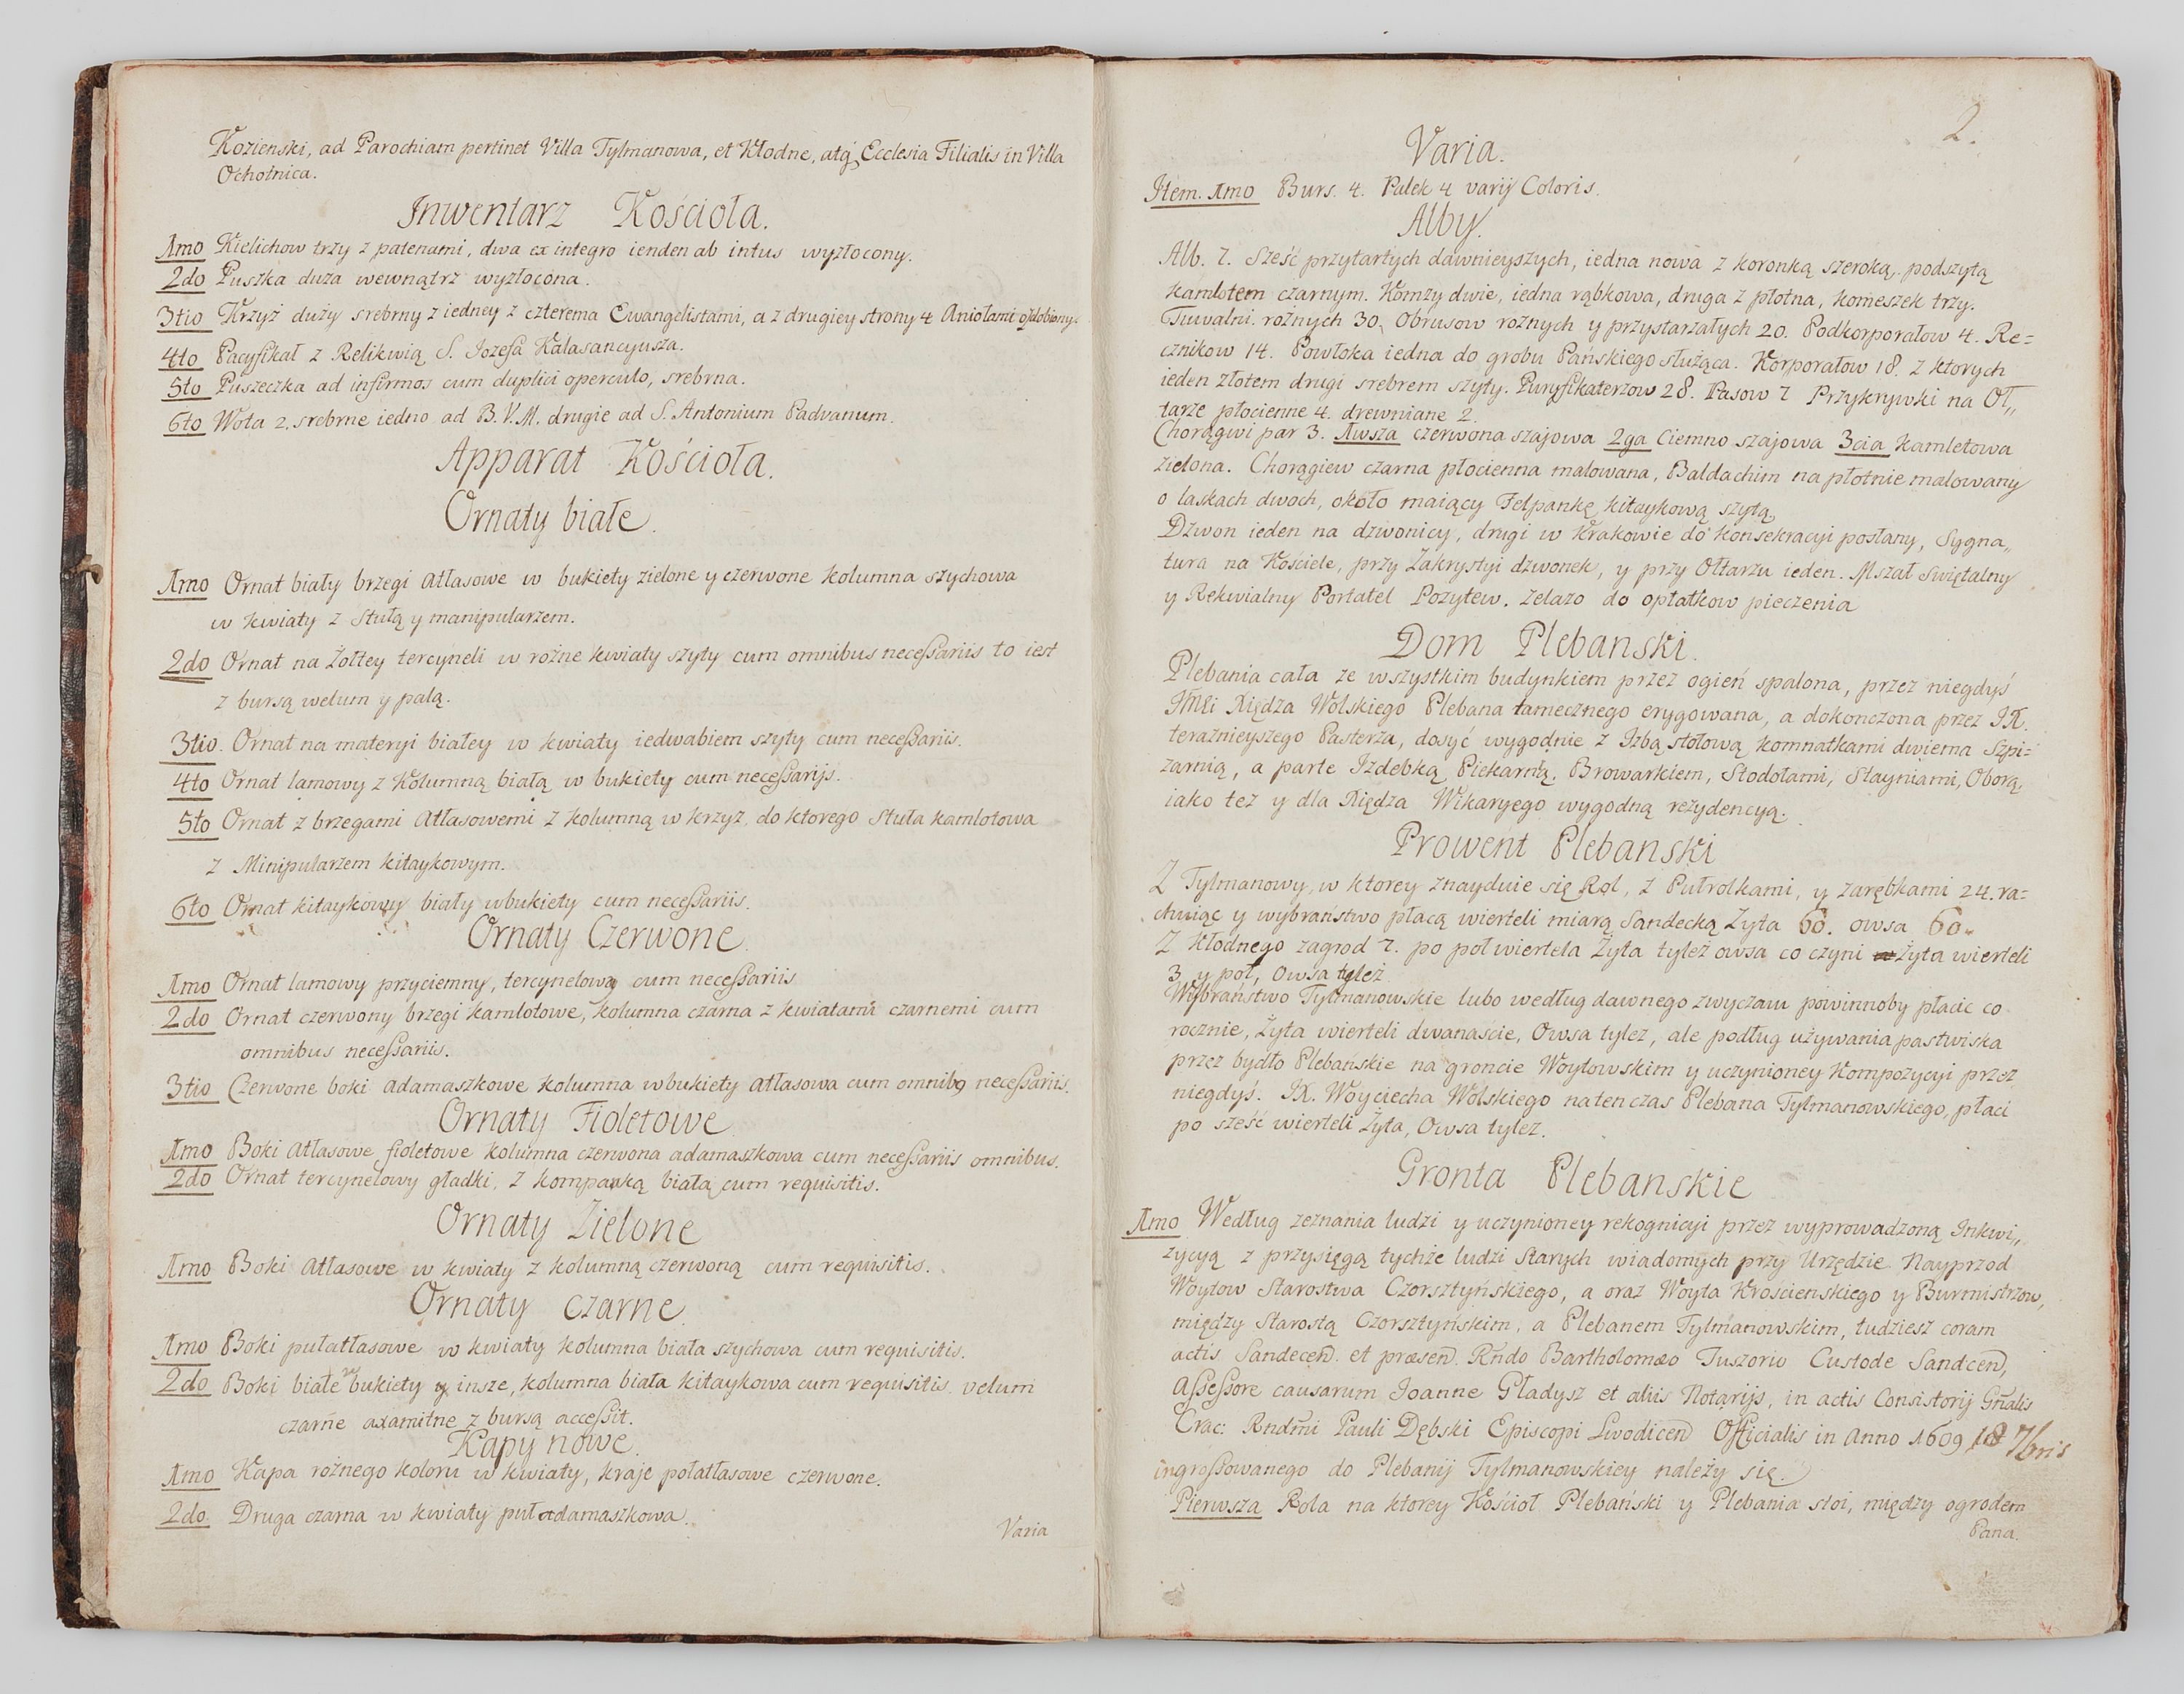 Kozienski, ad Parochiam pertinet Villa Tylmanowa, et Kłodne, atq; Ecclesia Filialis in Villa
Ochotnica.
Inwentarz Kościoła.
1mo Kielichow trzy z patenami, dwa ex integro ienden ab intus wyzłocony.
2do Puszka duża wewnątrz wyzłocona.
3tio Krzyż duży srebrny z iedney z czterema Ewangelistami, a z drugiey strony 4 Aniołami ozdobiony.
4to Pacyfikał z Relikwią S. Iozefa Kalasancyusza.
5to Puszeczka ad infirmos cum duplici operculo, srebrna.
6to Wota 2. srebrne iedno ad B.V.M. drugie ad S. Antonium Padvanum.
Apparat Kościoła.
Ornaty białe.
1mo Ornat biały brzegi atłasowe w bukiety zielone y czerwone kolumna szychowa
w kwiaty z Stułą y manipularzem.
2do Ornat na Żołtey tercyneli w rożne kwiaty szyty cum omnibus neceſsariis to iest
z bursą welum y palą.
3tio. Ornat na materyi białey w kwiaty iedwabiem szyty cum neceſsariis.
4to Ornat lamowy z Kolumną białą w bukiety cum neceſsarijs.
5to Ornat z brzegami Atłasowemi z kolumną w krzyż, do ktorego Stuła kamlotowa
z Minipularzem kitaykowym.
6to Ornat kitaykowy biały wbukiety cum neceſsariis.
Ornaty Czerwone.
1mo Ornat lamowy przyciemny, tercynelowy cum neceſsariis
2do Ornat czerwony brzegi kamlotowe, kolumna czarna z kwiatami czarnemi cum
omnibus neceſsariis.
3tio Czerwone boki adamaszkowe kolumna wbukiety Atłasowa cum omnibq neceſsariis.
Ornaty Fioletowe
1mo Boki Atłasowe fioletowe kolumna czerwona adamaszkowa cum neceſsariis omnibus.
2do Ornat tercynelowy gładki, z kompanką białą cum requisitis.
Ornaty Zielone
1mo Boki Atłasowe w kwiaty z kolumną czerwoną cum requisitis.
Ornaty czarne.
1mo Boki pułatłasowe w kwiaty kolumna biała szychowa cum requisitis.
2do Boki białe w bukiety y insze, kolumna biała kitaykowa cum requisitis. velum
czarne axamitne z bursą acceſsit.
Kapy nowe.
1mo Kapa rożnego koloru w kwiaty, kraje połatłasowe czerwone.
2do. Druga czarna w kwiaty puładamaszkowa.
Varia
2.
Varia.
Item. 1mo Burs. 4. Palek 4 varij Coloris.
Alby.
Alb. 7. Sześć przytartych dawnieyszych, iedna nowa z koronką szeroką, podszytą
kamlotem czarnym. Komży dwie, iedna rąbkowa, druga z płotna, komeszek trzy.
Tuwalni rożnych 30, Obrusow rożnych y przystarzałych 20. Podkorporałow 4. Re=
cznikow 14. Powłoka iedna do grobu Pańskiego służąca. Korporałow 18. z ktorych
ieden złotem drugi srebrem szyty. Puryfikaterzow 28. Pasow 7 Przykrywki na Oł„
tarze płocienne 4. drewniane 2.
Chorągwi par 3. 1wsza czerwona szajowa 2ga Ciemno szajowa 3cia kamletowa
zielona. Chorągiew czarna płocienna malowana, Baldachim na płotnie malowany
o laskach dwoch, około maiący Felpankę kitaykową szytą.
Dzwon ieden na dzwonicy, drugi w Krakowie do konsekracyi posłany, Sygna„
tura na Kościele, przy Zakrystyi dzwonek, y przy Ołtarzu ieden. Mszał Swiętalny
y Rekwialny Portatel Pozytew. Zelazo do opłatkow pieczenia
Dom Plebanski.
Plebania cała ze wszystkim budynkiem przez ogień spalona, przez niegdyś
Jmci Xiędza Wolskiego Plebana tamecznego erygowana, a dokonczona przez JX.
terażnieyszego Pasterza, dosyć wygodnie z Izbą stołową komnatkami dwiema Szpi=
zarnią, a parte Izdebką Piekarnłą, Browarkiem, Stodołami, Stayniami, Oborą,
iako też y dla Xiędza Wikaryego wygodną rezydencyą.
Prowent Plebanski
Z Tylmanowy, w ktorey znayduie się Rol, z Pułrolkami, y zarębkami 24. ra=
chuiąc y wybraństwo płacą wierteli miarą Sandecką Zyta 60. owsa 60.
Z Kłodnego zagrod 7. po poł wiertela Żyta tyleż owsa co czyni Żyta wierteli
3 y poł, Owsa tyleż
Wybraństwo Tylmanowskie lubo według dawnego zwyczaiu powinnoby płacic co
rocznie, Żyta wierteli dwanascie, Owsa tylez, ale podług używania pastwiska
przez bydło Plebańskie na groncie Woytowskim y uczynioney Kompozycyi przez
niegdyś. JX. Woyciecha Wolskiego naten czas Plebana Tylmanowskiego, płaci
po sześć wierteli Żyta, Owsa tylez.
Gronta Plebanskie
1mo Według zeznania ludzi y uczynioney rekognicyi przez wyprowadzoną Inkwi„
zycyą z przysięgą tychże ludzi Starych wiadomych przy Urzędzie Nayprzod
Woytow Starostwa Czorsztyńskiego, a oraz Woyta Krościenskiego y Burmistrzow,
między Starostą Czorsztyńskim, a Plebanem Tylmanowskim, tudziesz coram
actis Sandecen. et præsen. Rndo Bartholomæo Fuszoriu Custode Sandcen,
Aſseſsore causarum Ioanne Gładysz et aliis Notarijs, in actis Consistorij Gnalis
Crac: Rndmi Pauli Dębski Episcopi Lwodicen Officialis in Anno 1609 7bris
ingroſsowanego do Plebanij Tylmanowskiey należy się.
Pierwsza Rola na ktorey Kościoł Plebański y Plebania stoi, między ogrodem
Pana.